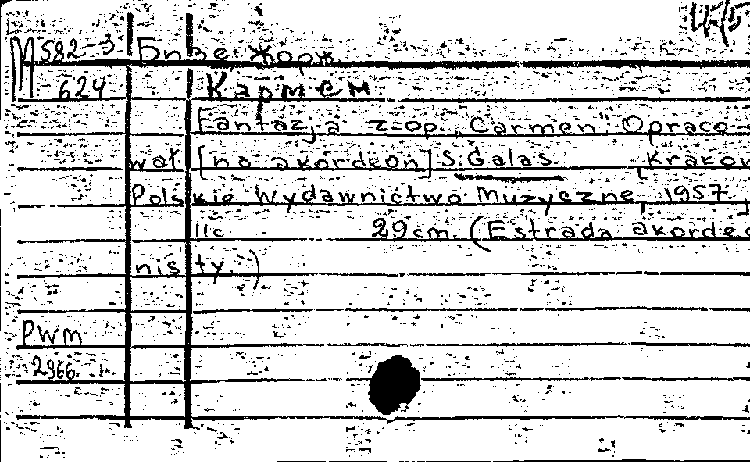 М 582-3 Бизе Жорж.
624 Кармен
Fantazja z op. „Carmen". Opraco-
wał [na akordeon] S. Galas. Kraków
Polskie Wydawnictwo Muzyczne, 1957,
11c 29cm. (Estrada akordeo
nisty.)
Pwm
2966